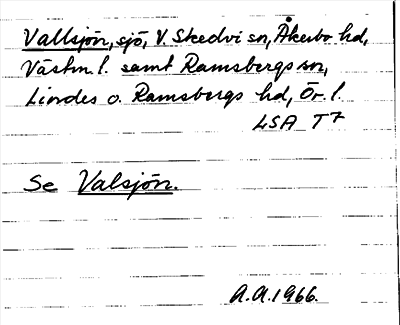 Vallsjön, sjö, V. Skedvi sn, Åkerbo hd,
Västm. l. samt Ramsbergs sn,
Lindes o. Ramsbergs hd, Ör. l.
LSA T7
Se Valsjön.
A.A. 1966.